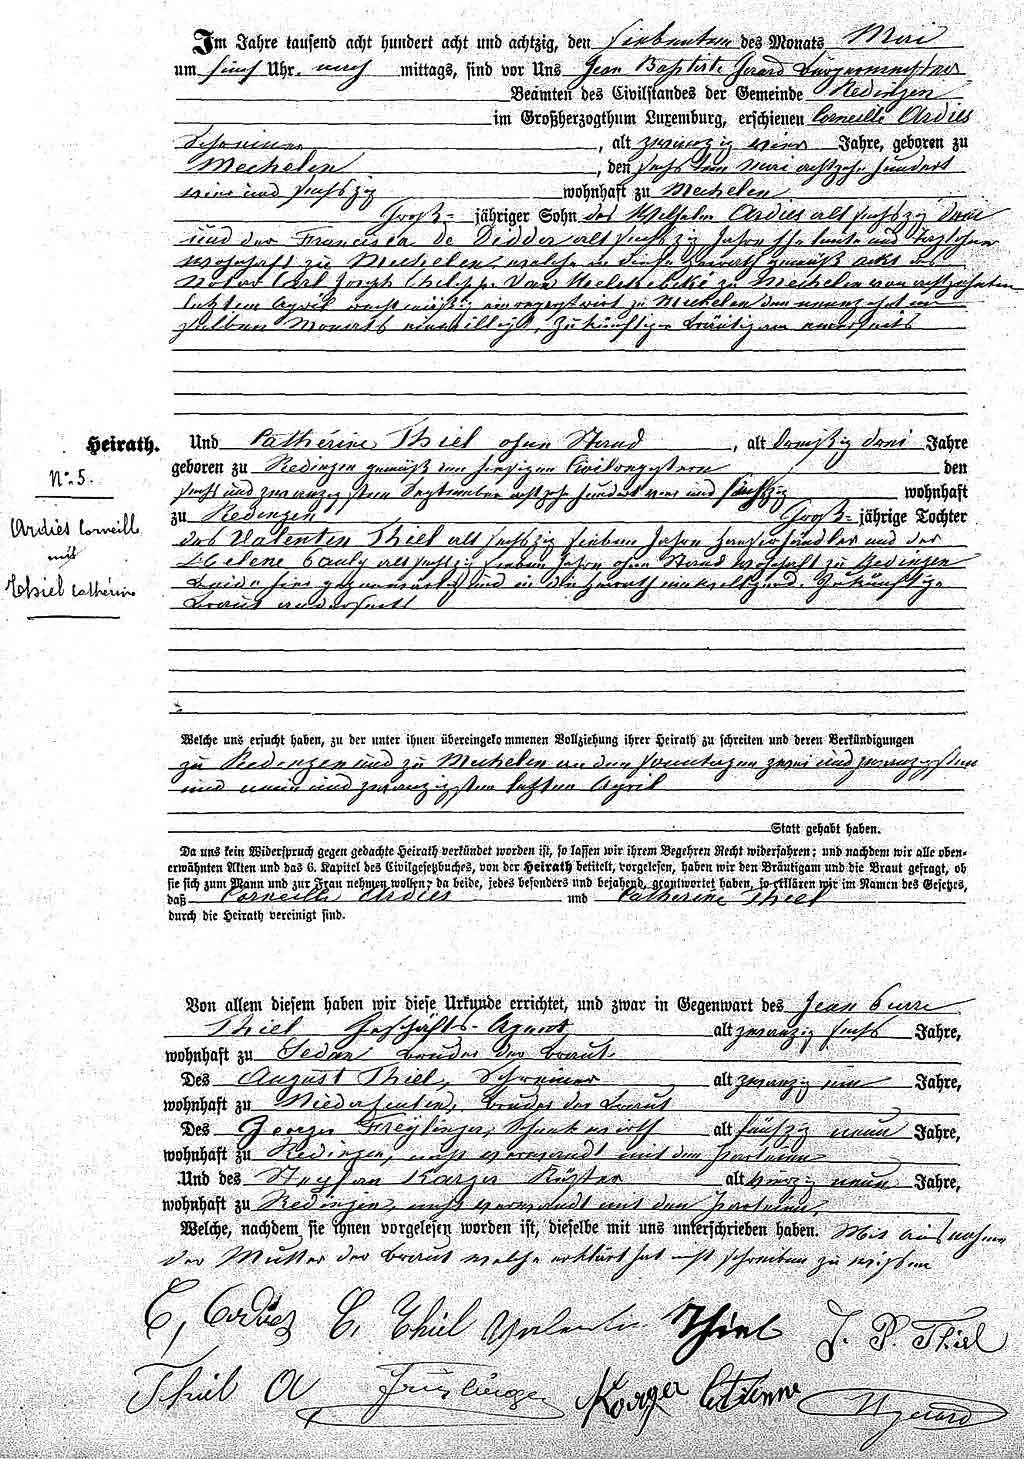 Im Jahre tausend acht hundert acht und achtzig, den siebenten des Monats Mai
um fünf Uhr nach mittags, sind vor Uns Jean Baptiste Gerard Bürgermeister
Beamten des Civilstandes der Gemeinde Redingen
im Großherzogthum Luxemburg, erschienen Corneille Ardies
Schreiner, alt zwanzig vier Jahre, geboren zu
Mechelen, den sechsten Mai achtzehn hundert
vier und sechszig wohnhaft zu Mechelen
Groß= jähriger Sohn des Wilhelm Ardies alt sechszig drei
und der Francisca de Ridder alt sechszig Jahre Eheleute und
wohnhaft zu Mechelen, welche in diese Heirath gemäß Akt des
Notar Carl Joseph Philipp Van Melckebeke zu Mechelen vom achtzehnten
letzten April einregistrirt zu Mechelen den neunzehnten
selben Monats einwilligt, zukünftiger Bräutigam einerseits
Heirath.
No. 5.
Ardies Corneille
mit
Thiel Catherine
Und Catherine Thiel ohne Stand, alt dreißig drei Jahre
geboren zu Redingen gemäß den hiesigen Civilregistern den
sechs und zwanzigsten September achtzehn hundert vier und fünfzig wohnhaft
zu Redingen Groß= jährige Tochter
des Valentin Thiel alt sechszig sieben Jahre und der
Helene Pauly alt sechszig sieben Jahre ohne Stand wohnhaft zu Redingen
Beide hier gegenwärtig und in die Heirath einwilligend. Zukünftige
Braut anderseits
Welche uns ersucht haben, zu der unter ihnen übereingekommenen Vollziehung ihrer Heirath zu schreiten und deren Verkündigungen
zu Redingen und zu Mechelen an den Sonntagen zwei und zwanzigsten
und neun und zwanzigsten letzten April
Statt gehabt haben.
Da uns kein Widerspruch gegen gedachte Heirath verkündet worden ist, so lassen wir ihrem Begehren Recht widerfahren; und nachdem wir alle oben-
erwähnten Akten und das 6. Kapitel des Civilgesetzbuches, von der Heirath betitelt, vorgelesen, haben wir den Bräutigam und die Braut gefragt, ob
sie sich zum Mann und zur Frau nehmen wollen; da beide, jedes besonders und bejahend, geantwortet haben, so erklären wir im Namen des Gesetzes,
daß Corneille Ardies und Catherine Thiel
durch die Heirath vereinigt sind.
Von allem diesem haben wir diese Urkunde errichtet, und zwar in Gegenwart des Jean Pierre
Thiel Geschäfts-Agent alt zwanzig sechs Jahre,
wohnhaft zu Sedan Bruder der Braut
Des August Thiel, Schreiner alt zwanzig ein Jahre,
wohnhaft zu Niederfeulen, Bruder der Braut
Des Georges Freylinger, Schenkwirth alt fünfzig neun Jahre,
wohnhaft zu Redingen, nicht verwandt mit den Parteien
Und des Stephan Karger Küster alt vierzig neun Jahre,
wohnhaft zu Redingen, nicht verwandt mit den Parteien,
Welche, nachdem sie ihnen vorgelesen worden ist, dieselbe mit uns unterschrieben haben. Mit Ausnahme
der Mutter der Braut welche erklärt hat nicht schreiben zu wissen
C, Ardies C, Thiel Valentin Thiel J. P. Thiel
Thiel A Freylinger Karger Etienne Gerard